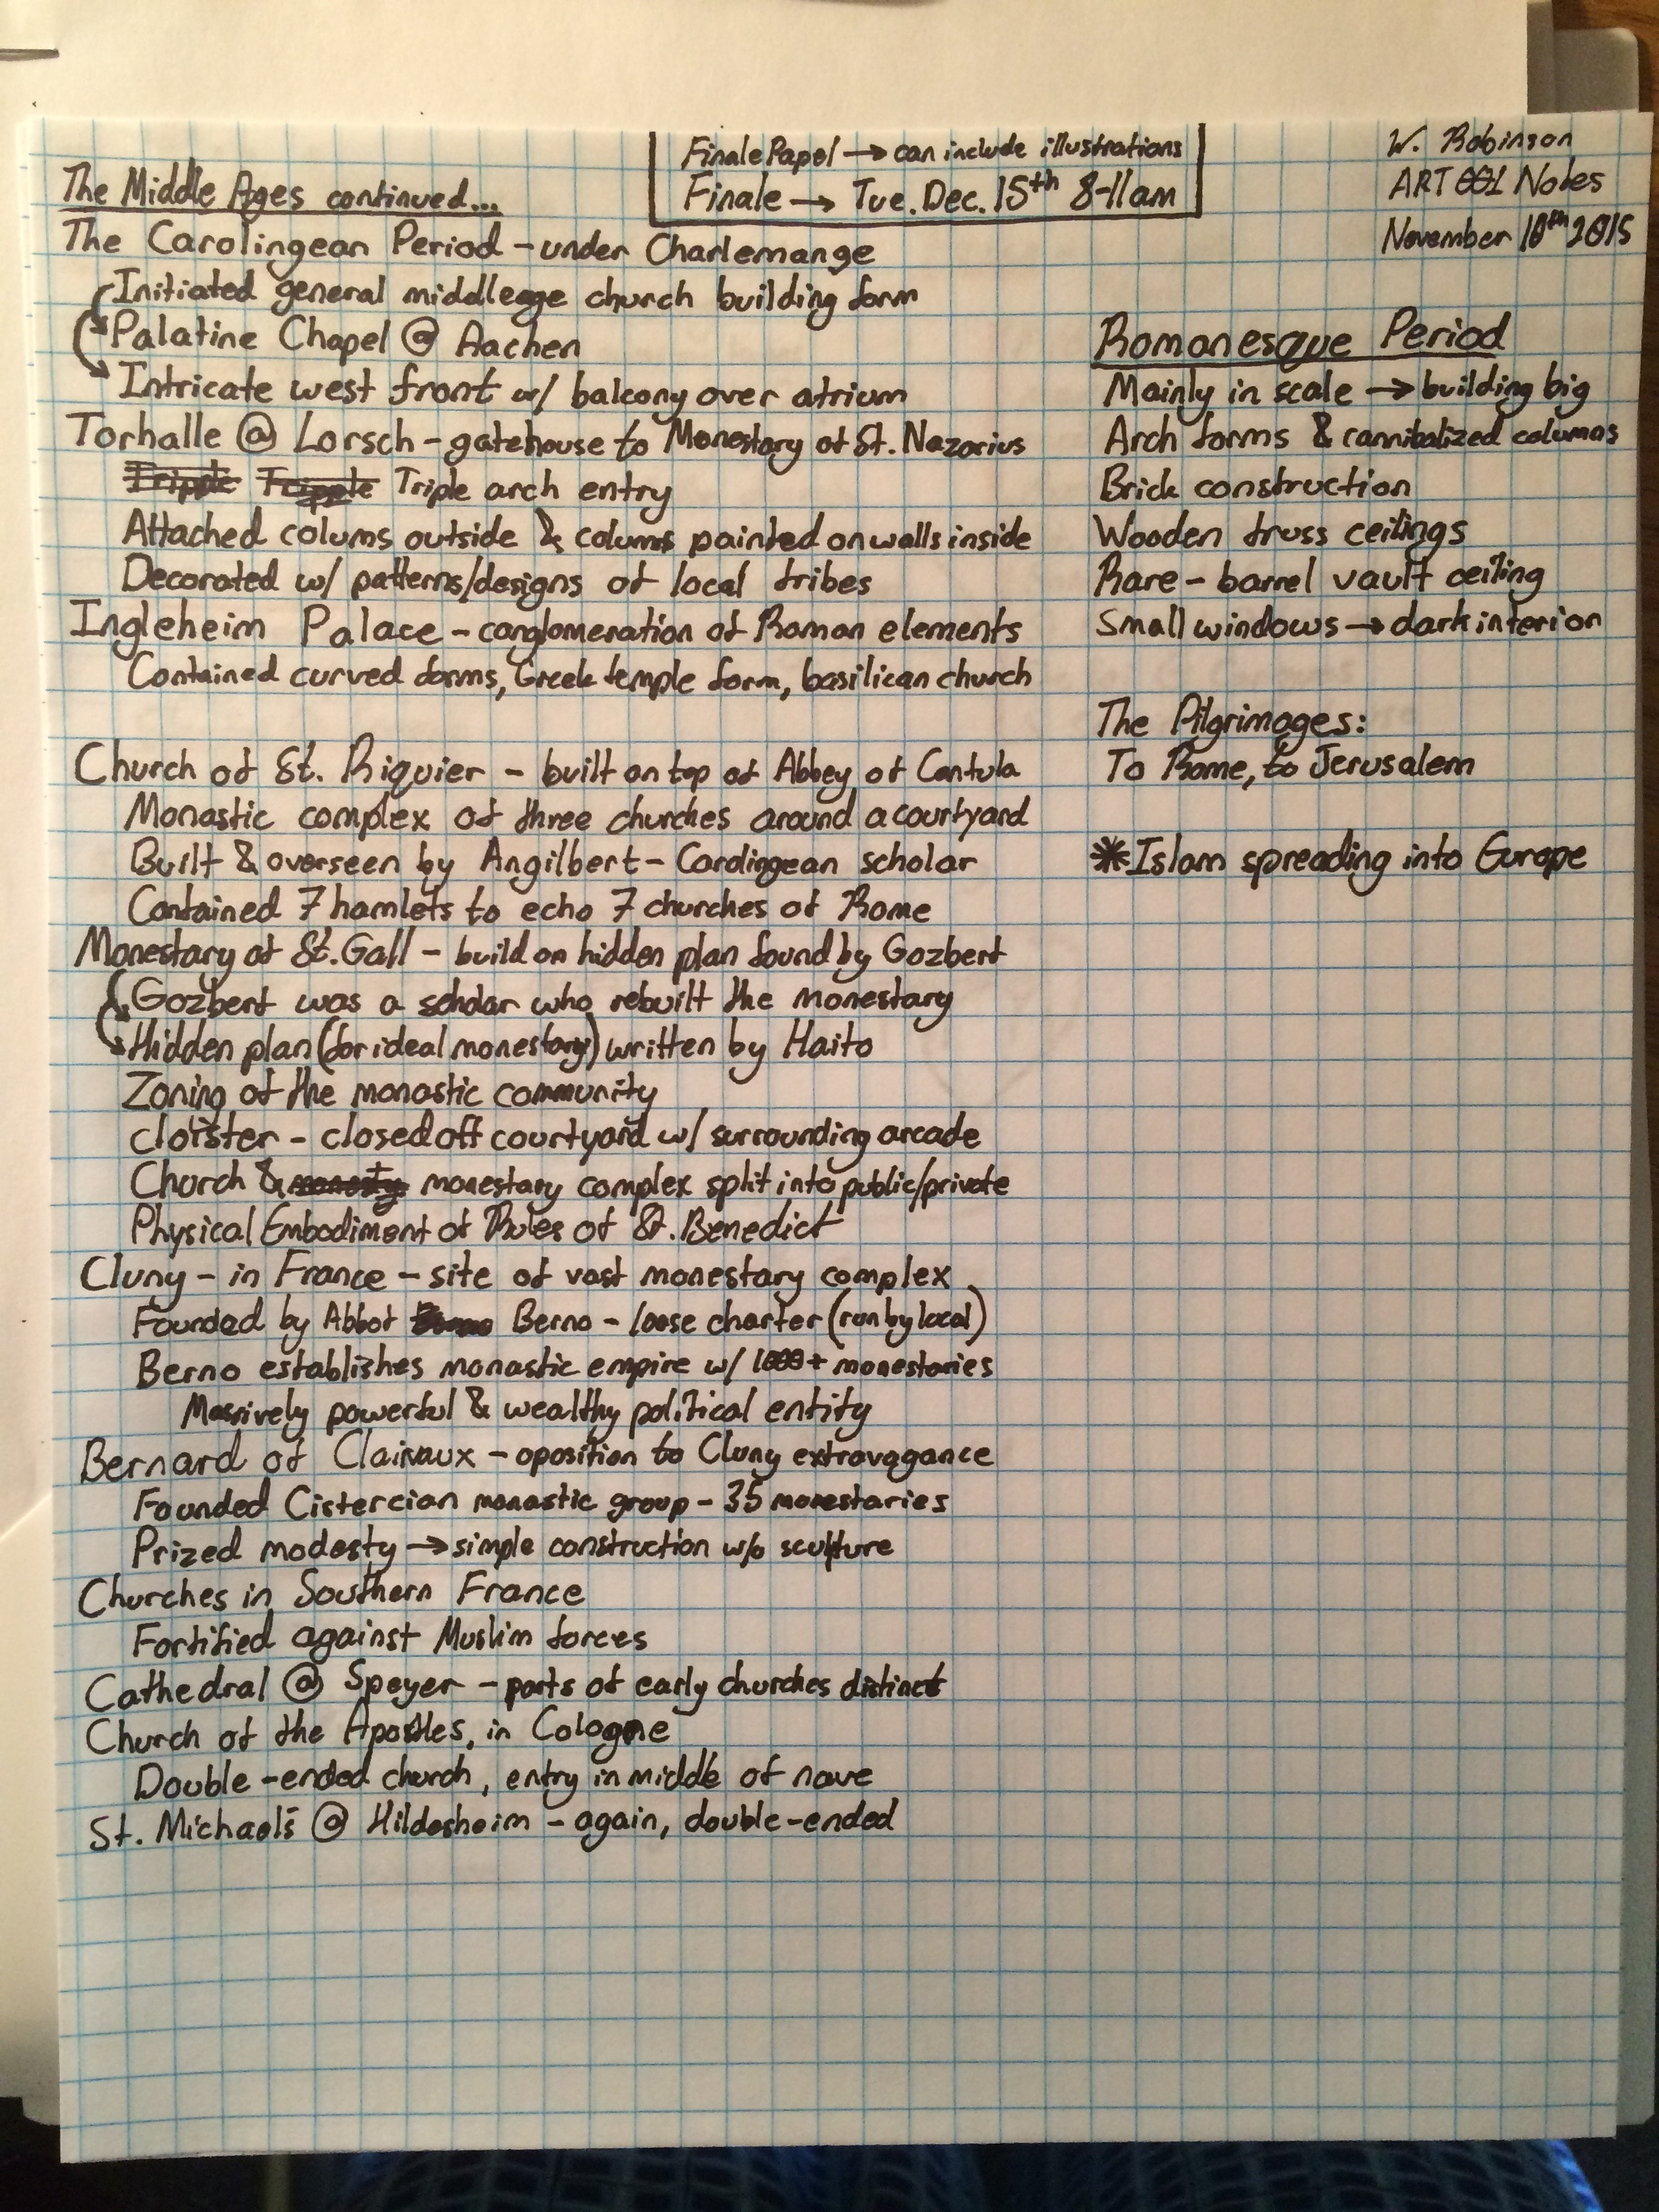 Finale Paper → can include illustrations
Finale → Tue. Dec. 15th 8-11am
W. Robinson
ART 001 Notes
November 10th 2015
The Middle Ages continued...
The Carolingean Period - under Charlemange
Initiated general middleage church building form
Palatine Chapel @ Aachen
Intricate west front w/ balcony over atrium
Torhalle @ Lorsch - gatehouse to Monestary of St. Nazarius
Tripple Tripple Triple arch entry
Attached colums outside & colums painted on walls inside
Decorated w/ patterns/designs of local tribes
Ingleheim Palace - conglomeration of Roman elements
Contained curved forms, Greek temple form, basilican church
Church of St. Riquier - built on top of Abbey of Centula
Monastic complex of three churches around a courtyard
Built & overseen by Angilbert - Carolingean scholar
Contained 7 hamlets to echo 7 churches of Rome
Monestary of St. Gall - build on hidden plan found by Gozbert
Gozbert was a scholar who rebuilt the monestary
Hidden plan (for ideal monestary) written by Haito
Zoning of the monastic community
Cloister - closed off courtyard w/ surrounding arcade
Church & monestary complex split into public/private
Physical Embodiment of Rules of St. Benedict
Cluny - in France - site of vast monestary complex
Founded by Abbot Berno - loose charter (run by local)
Berno establishes monastic empire w/ 1000+ monestaries
Massively powerful & wealthy political entity
Bernard of Clairvaux - oposition to Cluny extravagance
Founded Cistercian monastic group - 35 monestaries
Prized modesty → simple construction w/o sculpture
Churches in Southern France
Fortified against Muslim forces
Cathedral @ Speyer - parts of early churches distinct
Church of the Apostles, in Cologne
Double-ended church, entry in middle of nave
St. Michael's @ Hildesheim - again, double-ended
Romanesque Period
Mainly in scale → building big
Arch forms & cannibalized columns
Brick construction
Wooden truss ceilings
Rare - barrel vault ceiling
Small windows → dark interior
The Pilgrimages:
To Rome, to Jerusalem
* Islam spreading into Europe